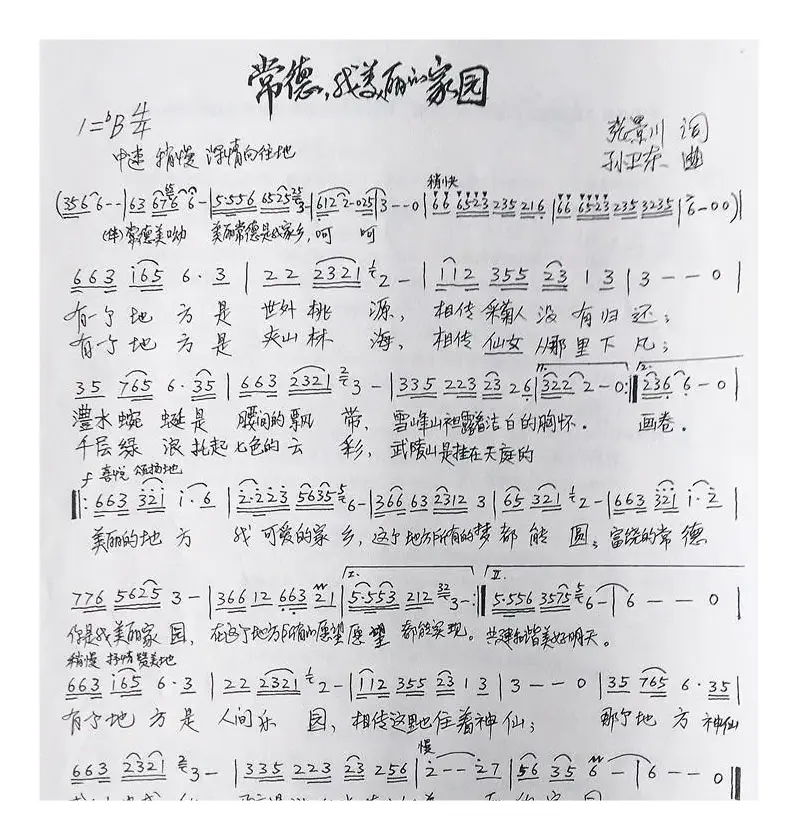 常德，我美丽的家园
1=♭B 4/4
张景川 词
中速 稍慢 深情向往地
孙卫东 曲
稍快
(356 6 - - | 63 676 6 - | 5·556 6525 3 - | 612 2 - 025 | 3 - - 0 | 66 6523 235 216 | 66 6523 235 3235 | 6 - 0 0)|
(伴)常德美呦 美丽常德是我家乡，呵 呵
663 i65 6· 3 | 22 2321 2 - | i12 355 23 1 3 | 3 - - 0 |
有一个地 方是 世外桃 源，相传采菊人没有归还；
有一个地 方是 夹山林 海，相传仙女从那里下凡；
35 765 6·35 | 663 2321 3 - | 335 223 23 26 | 322 2 - 0 :| 236 6 - 0 |
澧水蜿 蜒是 腰间的飘 带，雪峰山袒露着洁白的胸怀。 画卷。
千层绿 浪托起七色的云 彩，武陵山是挂在天庭的
f 喜悦 颂扬地
|: 663 321 i· 6 | 2·223 5635 6 - | 366 63 2312 3 | 65 321 2 - | 663 321 i· 2 |
美丽的地 方 我可爱的家 乡，这个地方所有的梦都能 圆；富饶的常 德
I. II.
776 5625 3 - | 366 12 663 21 | 5·553 212 3 - :| 5·556 3575 6 - | 6 - - 0 |
你是我美丽家 园，在这个地方所有的愿望愿望 都能实现。共建和谐美好明天。
稍慢 抒情赞美地
663 i65 6· 3 | 22 2321 2 - | i12 355 23 1 3 | 3 - - 0 | 35 765 6·35 |
有个地 方是 人间乐 园，相传这里也住着神仙； 那个地 方神仙
慢
663 2321 3 - | 335 223 23 256 | 2 - - 27 | 56 35 6 - | 6 - - 0 ||